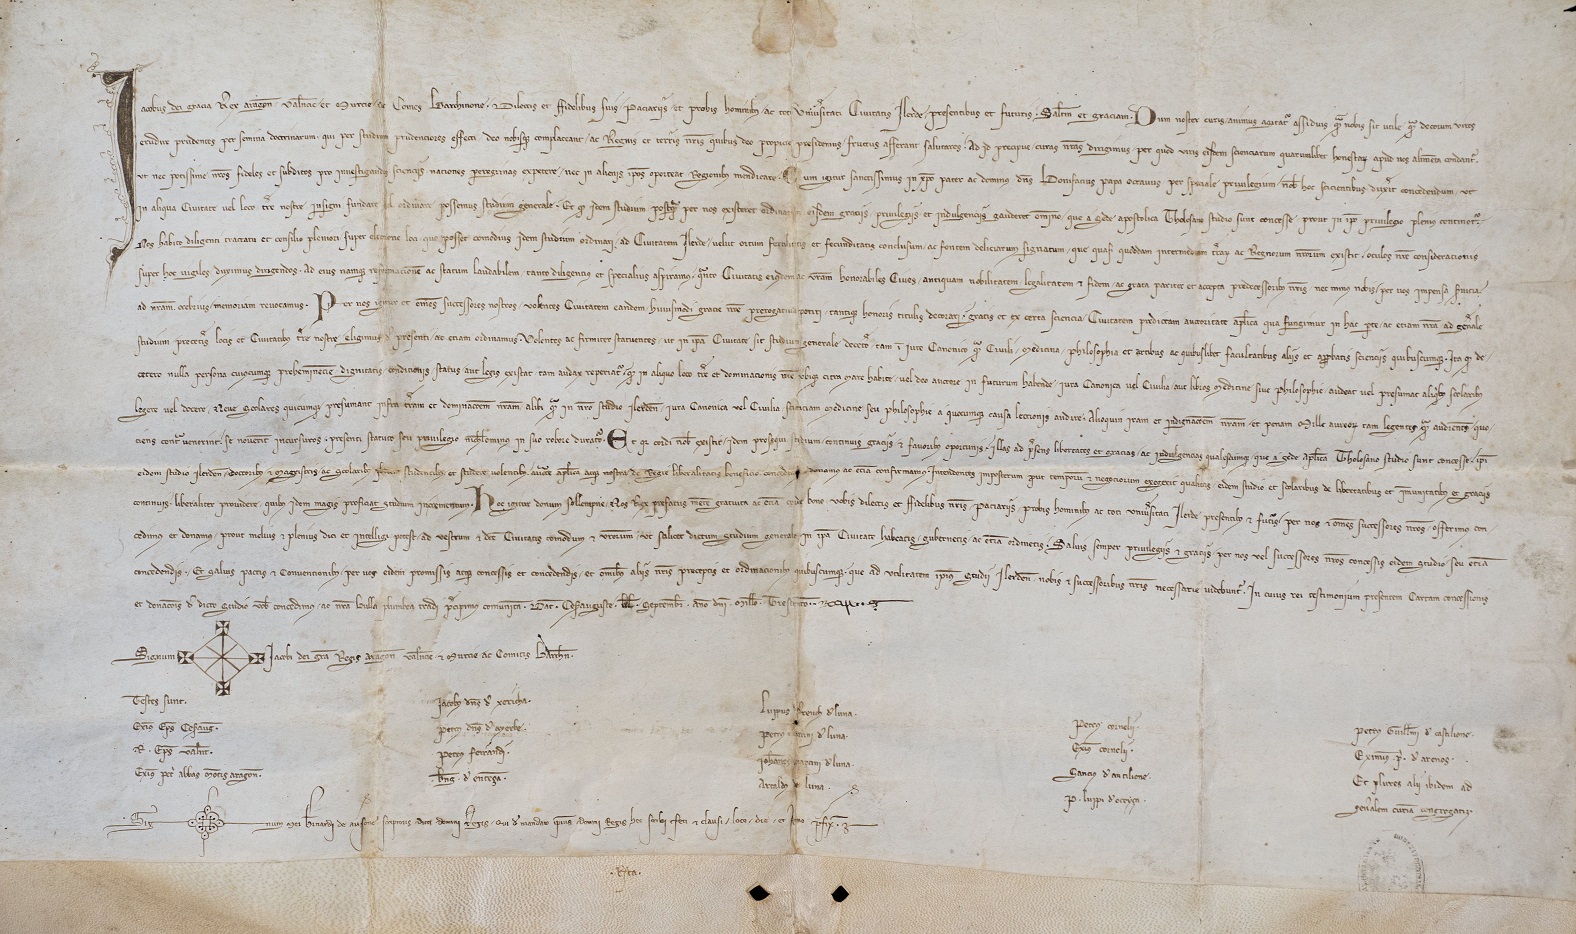 Jacobus dei gracia Rex aragon. Valencie et Murcie, ac Comes Barchinone. Dilectis et ffidelibus suis Paciariis, et probis hominibus, ac toti Universitati Civitatis Ilerde, presentibus et futuris. Salutem et graciam. Dum noster curis animus agitatur assiduis quam nobis sit utile quam decorum viros
erudire prudentes per semina doctrinarum, qui per studium prudenciores effecti deo nobisque complaceant, ac Regnis et terris nostris quibus deo propicio presidemus, fructus afferant salutares. Ad id precipue curas nostras dirigimus, per quod viris eisdem scienciarum quarumlibet honestarum apud nos alimenta condantur.
ut nec potissime nostros fideles et subditos pro investigandis scienciis naciones peregrinas expetere, nec in alienis ipsos oporteat Regionibus mendicare. Cum igitur sanctissimus in christo pater ac dominus dominus Bonifacius papa octavus per speciale privilegium, nobis hec scientibus duxerit concedendum, ut
in aliqua Civitate vel loco terre nostre insigni fundare vel ordinare possemus studium generale. Et quod idem studium postquam per nos existeret ordinatum eisdem graciis, privilegiis et indulgenciis gauderet omnino, que a sede apostolica Tholosano studio sunt concesse, prout in ipso privilegio plenius continetur.
Nos habito diligenti tractatu et consilio pleniori super electione loci, quo posset comodius idem studium ordinari, ad Civitatem Ilerde, velut ortum fertilitatis et fecunditatis conclusum, ac fontem deliciarum signatum, que quasi quoddam intermedium terrarum ac Regnorum nostrorum existit, oculos nostre consideracionis
super hoc vigiles duximus dirigendos. Ad cuius namque reformacionem ac statum laudabilem, tanto diligencius et specialius aspiramus, quanto Civitatis eiusdem ac vestram honorabiles Cives, antiquam nobilitatem legalitatem et fidem, ac grata pariter et accepta predecessoribus nostris nec minus nobis, per vos impensa servicia
ad nostram crebrius memoriam revocamus. Per nos igitur et omnes successores nostros, volentes Civitatem eandem, huiusmodi gracie nostre prerogativa potiri, tantique honoris titulis decorari, gratis et ex certa sciencia, Civitatem predictam auctoritate apostolica qua fungimur in hac parte, ac etiam nostra ad generale
studium preceteris locis et Civitatibus terre nostre eligimus de presenti, ac etiam ordinamus. Volentes ac firmiter statuentes, ut in ipsa Civitate sit studium generale decetero, tam in Iure Canonico quam Civili, Medicina, philosophia et artibus ac quibuslibet facultatibus aliis et approbatis scienciis quibuscumque. Ita quod de
cetero nulla persona cuiuscumque preheminencie, dignitatis, condicionis, status aut legis existat tam audax reperiatur, quod in aliquo loco terre et dominacionis nostre ubique citra mare habite, vel deo auctore in futurum habende, iura Canonica vel Civilia, aut libros Medicine sive philosophie, audeat vel presumat aliquibus scolaribus
legere vel docere. Neve Scolares quicumque presumant infra terram et dominacionem nostram, alibi quam in nostro studio Ilerdensi, iura Canonica vel Civilia, scienciam medicine seu philosophie a quocumque causa leccionis audire. Alioquin iram et indignacionem nostram, et penam Mille aureorum tam legentes quam audientes, quo
ciens contravenerint, se noverint incursuros, presenti statuto seu privilegio nichilominus in suo robore duraturo. Et quia cordi nobis existit, idem prosequi studium, continuis graciis et favoribus oportunis, illas ad presens libertates et gracias, ac indulgencias qualescumque, que a sede apostolica Tholosano studio sunt concesse, ipsi
eidem studio Ilerdensi, doctoribus et Magistris, ac Scolaribus studentibus et studere volentibus, auctoritate apostolica atque nostra de Regie liberalitatis beneficio, concedimus, donamus ac etiam confirmamus. Intendentes imposterum prout temporum et negociorum exegerit qualitas, eidem studio et scolaribus de libertatibus et immunitatibus et graciis
continuis, liberaliter providere, quibus idem magis proficiat studium incrementum. Hoc igitur donum sollempne, Nos Rex prefatus mente gratuita ac etiam corde bono vobis dilectis et ffidelibus nostris, paciariis, probis hominibus, ac toti Universitati Ilerde presentibus et futuris, per nos et omnes successores nostros, offerimus con
cedimus et donamus, prout melius et plenius dici et intelligi potest, ad vestrum et dicte Civitatis comodum et utorum, ut scilicet dictum studium generale in ipsa Civitate habeatis, gubernetis, ac etiam ordinetis. Salvis semper privilegiis et graciis, per nos vel successores nostros concessis eidem studio, seu etiam
concedendis. Et salvis pactis et Convencionibus, per vos eidem promissis atque concessis et concedendis, et omnibus aliis nostris preceptis et ordinacionibus quibuscumque, que ad utilitatem ipsius Studii Ilerdensis, nobis et successoribus nostris necessarie videbuntur. In cuius rei testimonium presentem Cartam concessionis
et donacionis de dicto Studio vobis concedimus, ac nostra bulla plumbea tradi precipimus comunitam. Dat. Cesarauguste, Kal. Septembris, anno domini Millo. Trescento.
Signum Jacobi dei gracia Regis aragon Valencie et Murcie ac Comitis Barchn.
Testes sunt.
Exim. Eps Cesaraug.
R. Eps Valent.
Exim. petri abbas Montis aragon.
Jacobus dns de xericha.
Petrus dns de ayerbe.
Petrus ferrandi.
Bng. de entença.
Luppus ferrench de luna.
Petrus martini de luna.
Johannes martini de luna.
Artaldus de luna.
Petrus cornelii.
Exim. cornelii.
Sancius d antilione.
P. luppi d oteyça.
Petrus Guillmi de castilione.
Eximinus p. d arenos.
Et plures alii ibidem ad
generalem curiam congregati.
Sig num mei Bernardi de aversone scriptoris dicti domini Regis, qui de mandato ipsius domini Regis hec scribi feci et clausi, loco, die, et anno prefixis.
Rta.